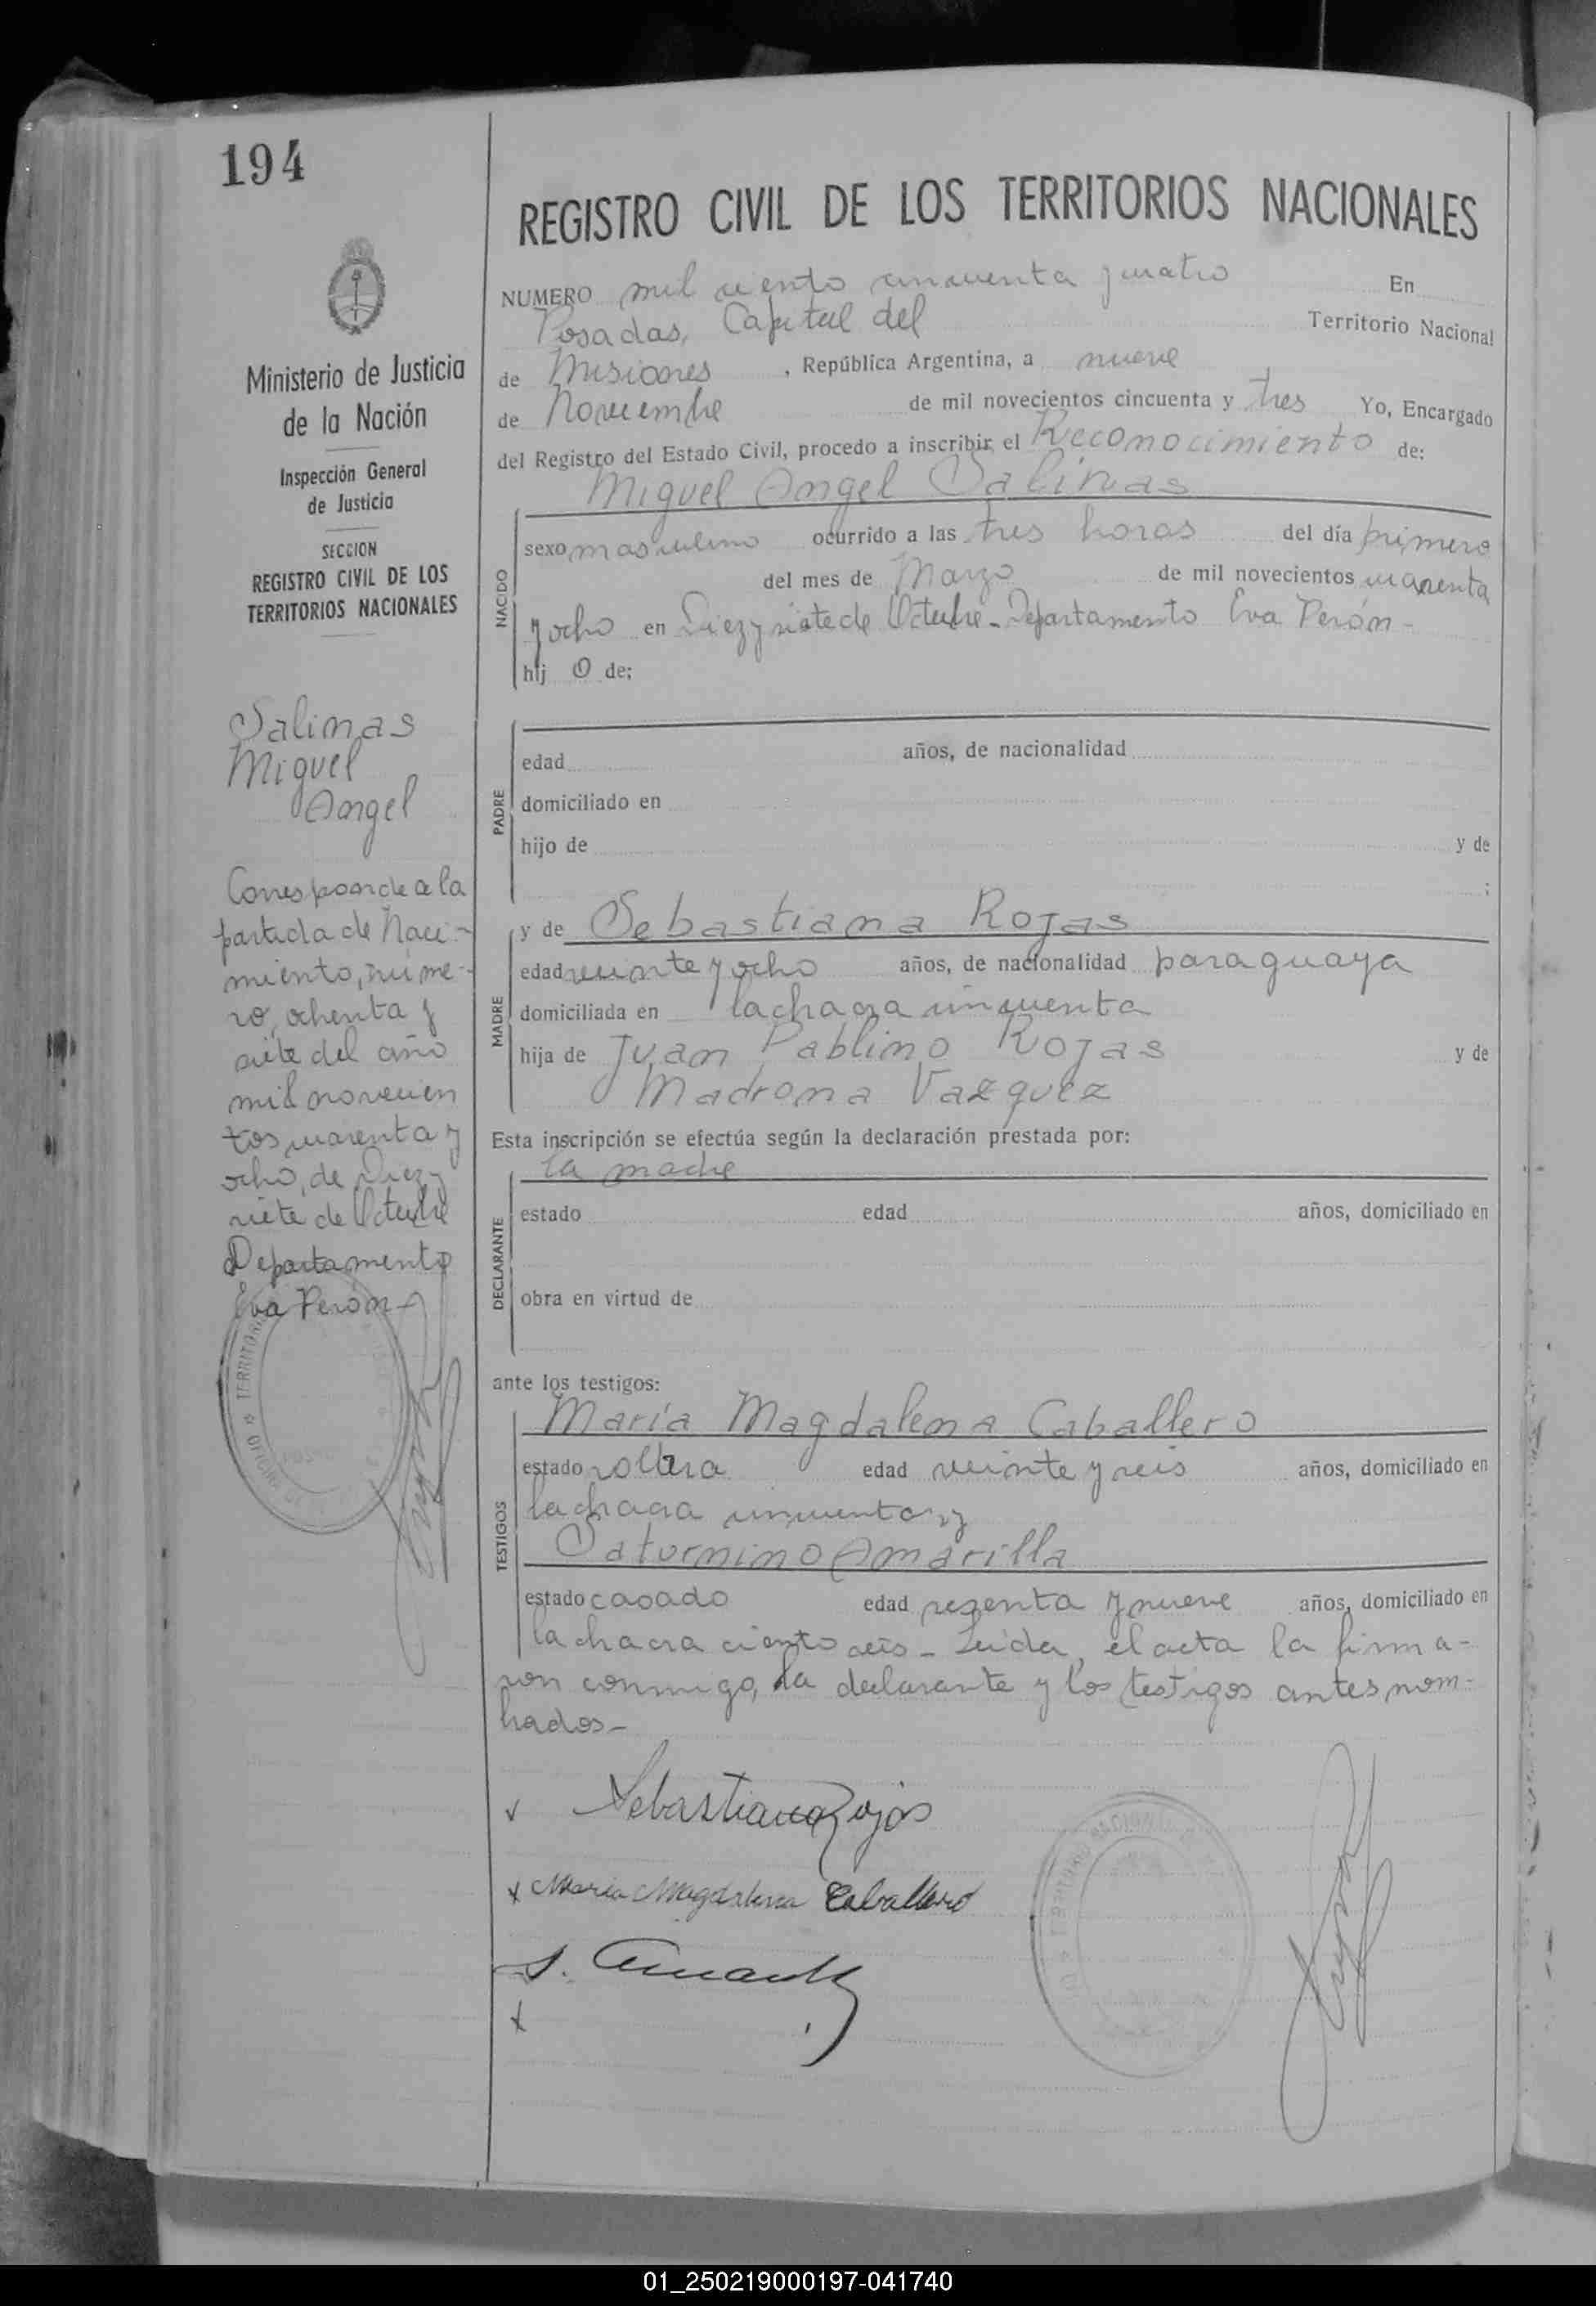 194
Ministerio de Justicia
de la Nación
Inspección General
de Justicia
SECCION
REGISTRO CIVIL DE LOS
TERRITORIOS NACIONALES
Salinas
Miguel
Angel
Corresponde a la
partida de Naci-
miento, núme-
ro, ochenta y
siete del año
mil novecien
tos cuarenta y
ocho, de Diez y
siete de Octubre
Departamento
Eva Perón-
REGISTRO CIVIL DE LOS TERRITORIOS NACIONALES
NUMERO mil ciento cincuenta y cuatro En
Posadas, Capital del Territorio Nacional
de Misiones , República Argentina, a nueve
de Noviembre de mil novecientos cincuenta y tres Yo, Encargado
del Registro del Estado Civil, procedo a inscribir el Reconocimiento de:
Miguel Angel Salinas
NACIDO
sexo masculino ocurrido a las tres horas del día primero
del mes de Marzo de mil novecientos cuarenta
y ocho en Diez y siete de Octubre - Departamento Eva Perón -
hij o de:
PADRE
edad años, de nacionalidad
domiciliado en
hijo de y de
;
MADRE
y de Sebastiana Rojas
edad veinte y ocho años, de nacionalidad paraguaya
domiciliada en la chacra cincuenta
hija de Juan Pablino Rojas y de
Madrona Vazquez
Esta inscripción se efectúa según la declaración prestada por:
DECLARANTE
la madre
estado edad años, domiciliado en
obra en virtud de
ante los testigos:
TESTIGOS
María Magdalena Caballero
estado soltera edad veinte y seis años, domiciliado en
la chacra cincuenta, y
Saturnino Amarilla
estado casado edad sesenta y nueve años, domiciliado en
la chacra ciento seis - Leída, el acta la firma-
ron conmigo, la declarante y los testigos antes nom-
brados-
Sebastiana Rojas
x Maria Magdalena Caballero
S. Amarilla
x
01_250219000197-041740